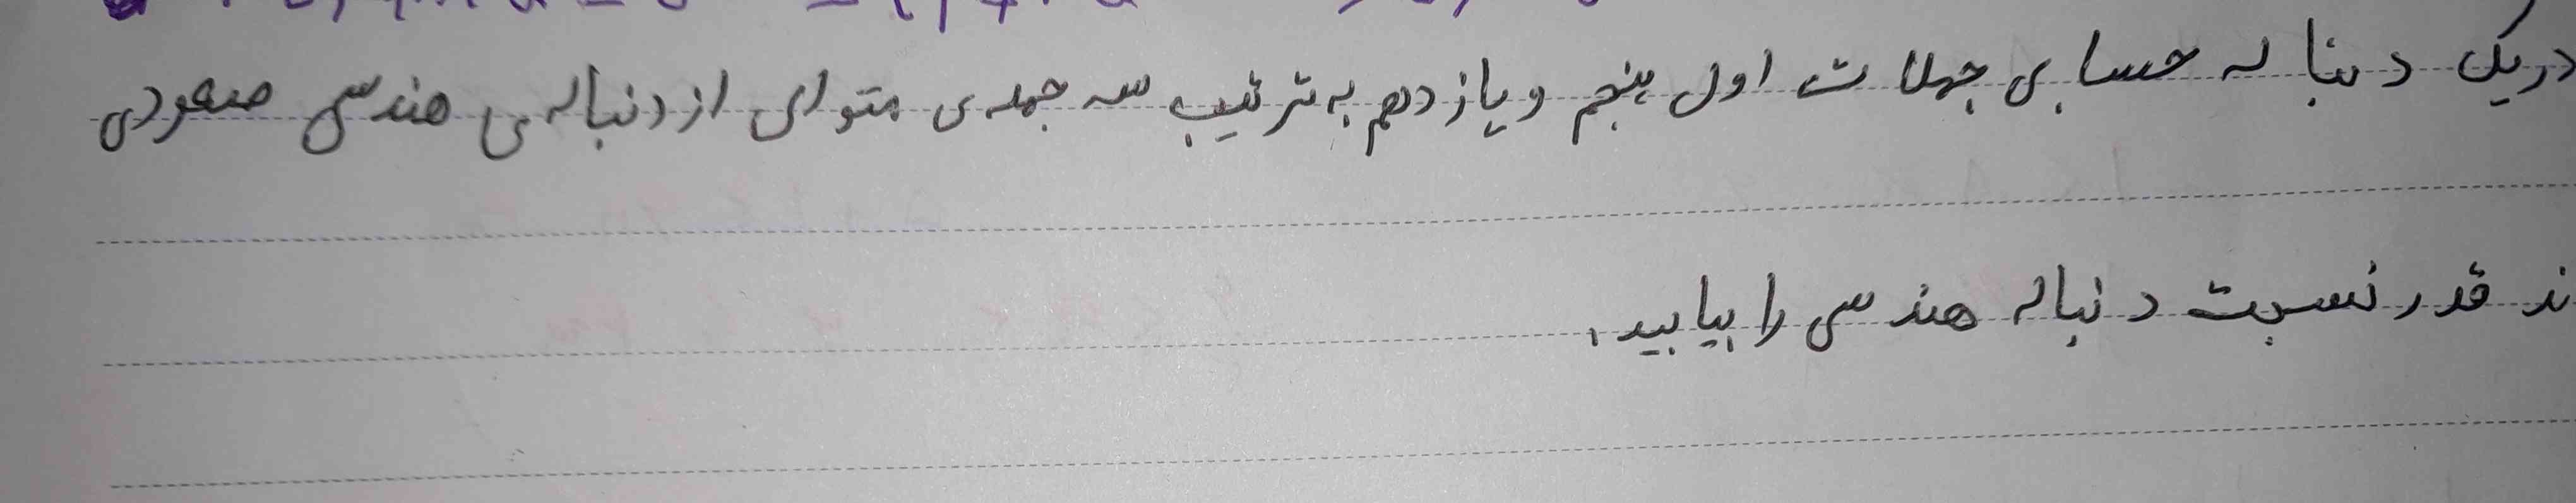 دریک دنباله حسابی جملات اول پنجم و یازدهم به ترتیب سه جمله ی متوالی از دنباله ی هندسی صعودی
ند قدر نسبت دنباله هندسی را بیابید.